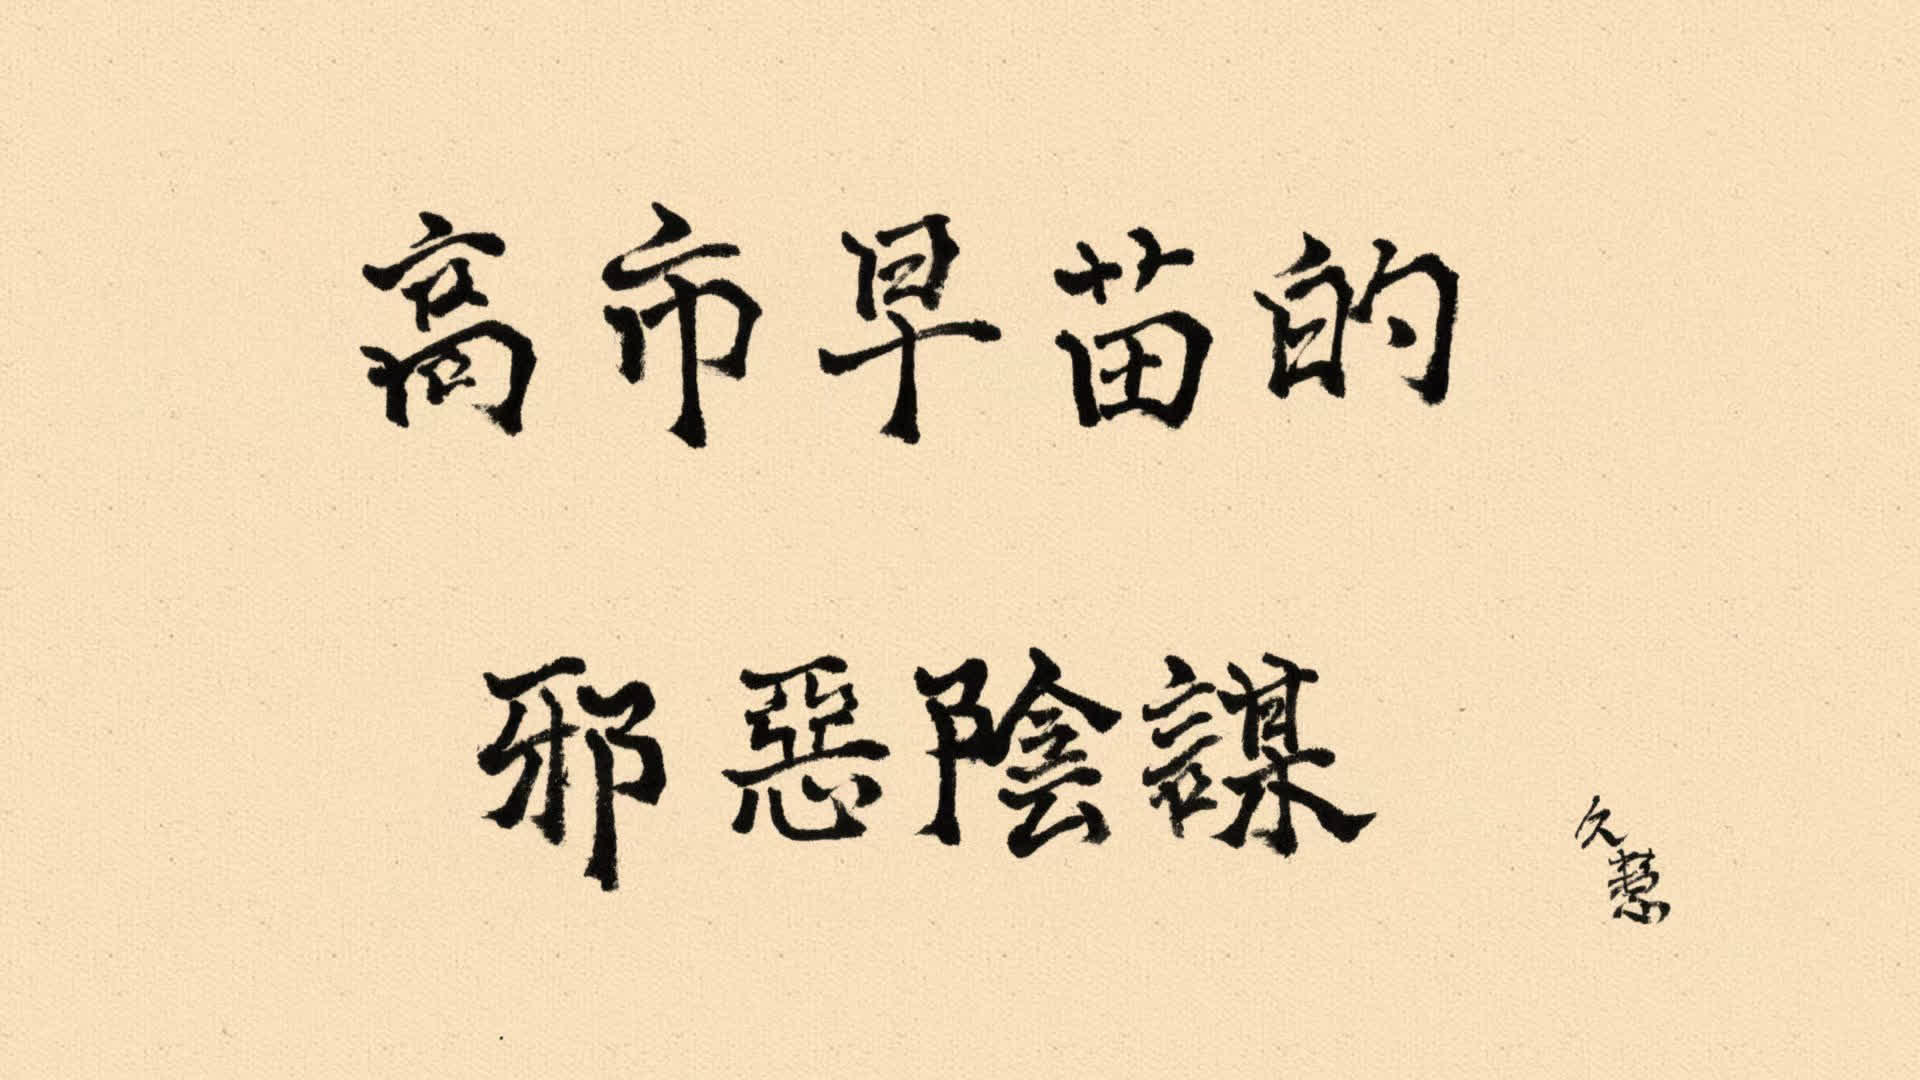 高市早苗的
邪惡陰謀
久慧